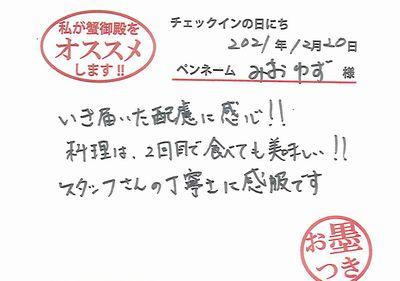 私が蟹御殿を
オススメ
します!!
チェックインの日にち
2021年12月20日
ペンネーム みおゆず 様
いき届いた配慮に感心!!
料理は、2回目で食べても美味しい!!
スタッフさんの丁寧さに感服です
お墨
つき